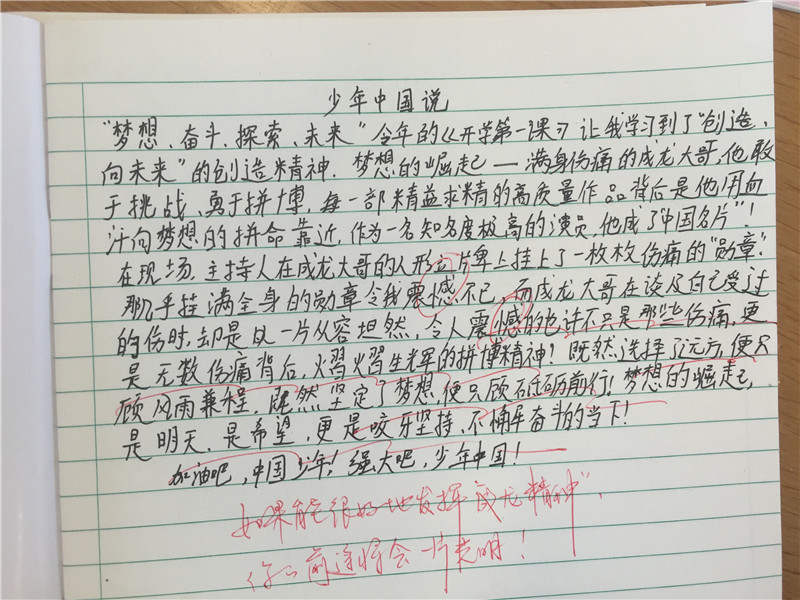 少年中国说
“梦想、奋斗、探索、未来”令年的《开学第一课》让我学习到了“创造、
向未来”的创造精神.梦想的崛起——满身伤痛的成龙大哥,他敢
于挑战、勇于拼博,每一部精益求精的高质量作品背后是他用血
汗向梦想的拼命靠近,作为一名知名度极高的演员,他成了“中国名片”!
在现场,主持人在成龙大哥的人形立牌上挂上了一枚枚伤痛的“勋章”.
那几乎挂满全身的勋章令我震憾不已,而成龙大哥在谈及自己受过
的伤时,却是以一片从容坦然,令人震憾的也许不只是那些伤痛,更
是无数伤痛背后,熠熠生辉的拼博精神!既然选择了远方,便只
顾风雨兼程,既然坚定了梦想,便只顾砥砺前行!梦想的崛起,
是明天,是希望,更是咬牙坚持、不懈奋斗的当下!
加油吧,中国少年!强大吧,少年中国!
如果能很好地发挥“成龙精神”,
你的前途将会一片光明!